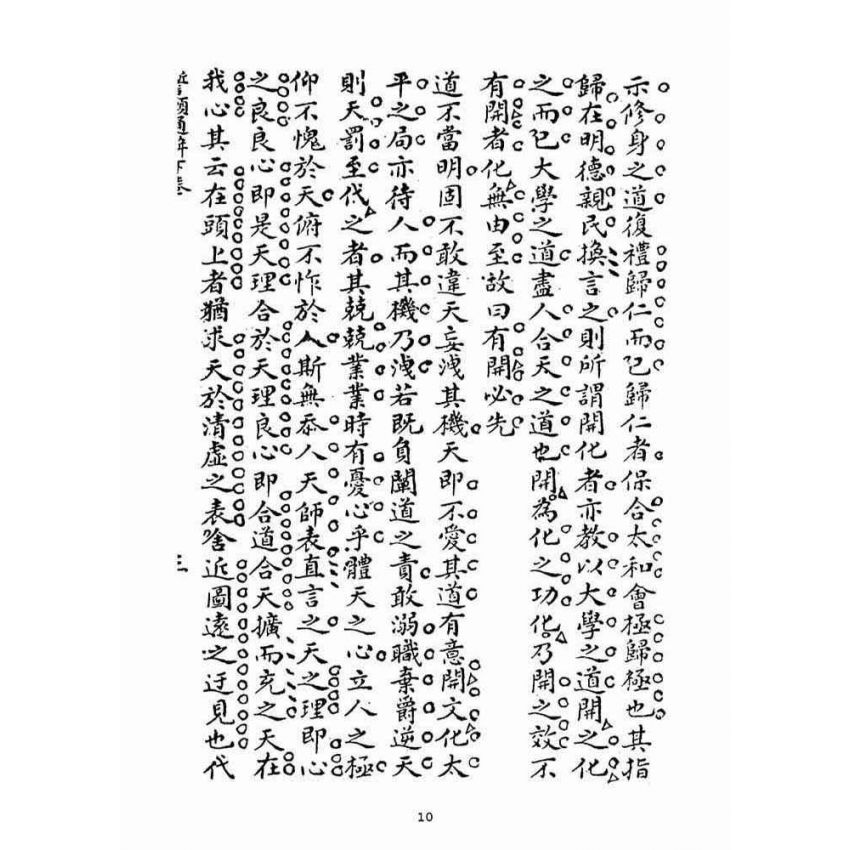 示修身之道復禮歸仁而已歸仁者保合太和會極歸極也其指
歸在明德親民換言之則所謂開化者亦教以大學之道開之化
之而已大學之道盡人合天之道也開為化之功化乃開之效不
有開者化無由至故曰有開必先
道不當明固不敢違天妄洩其機天即不愛其道有意開文化太
平之局亦待人而其機乃洩若既負闡道之責敢溺職棄爵逆天
則天罰至代之者其兢兢業業時有憂心乎體天之心立人之極
仰不愧於天俯不怍於人斯無忝人天師表直言之天之理即心
之良良心即是天理合於天理良心即合道合天擴而充之天在
我心其云在頭上者猶求天於清虛之表舍近圖遠之迂見也代
三
10